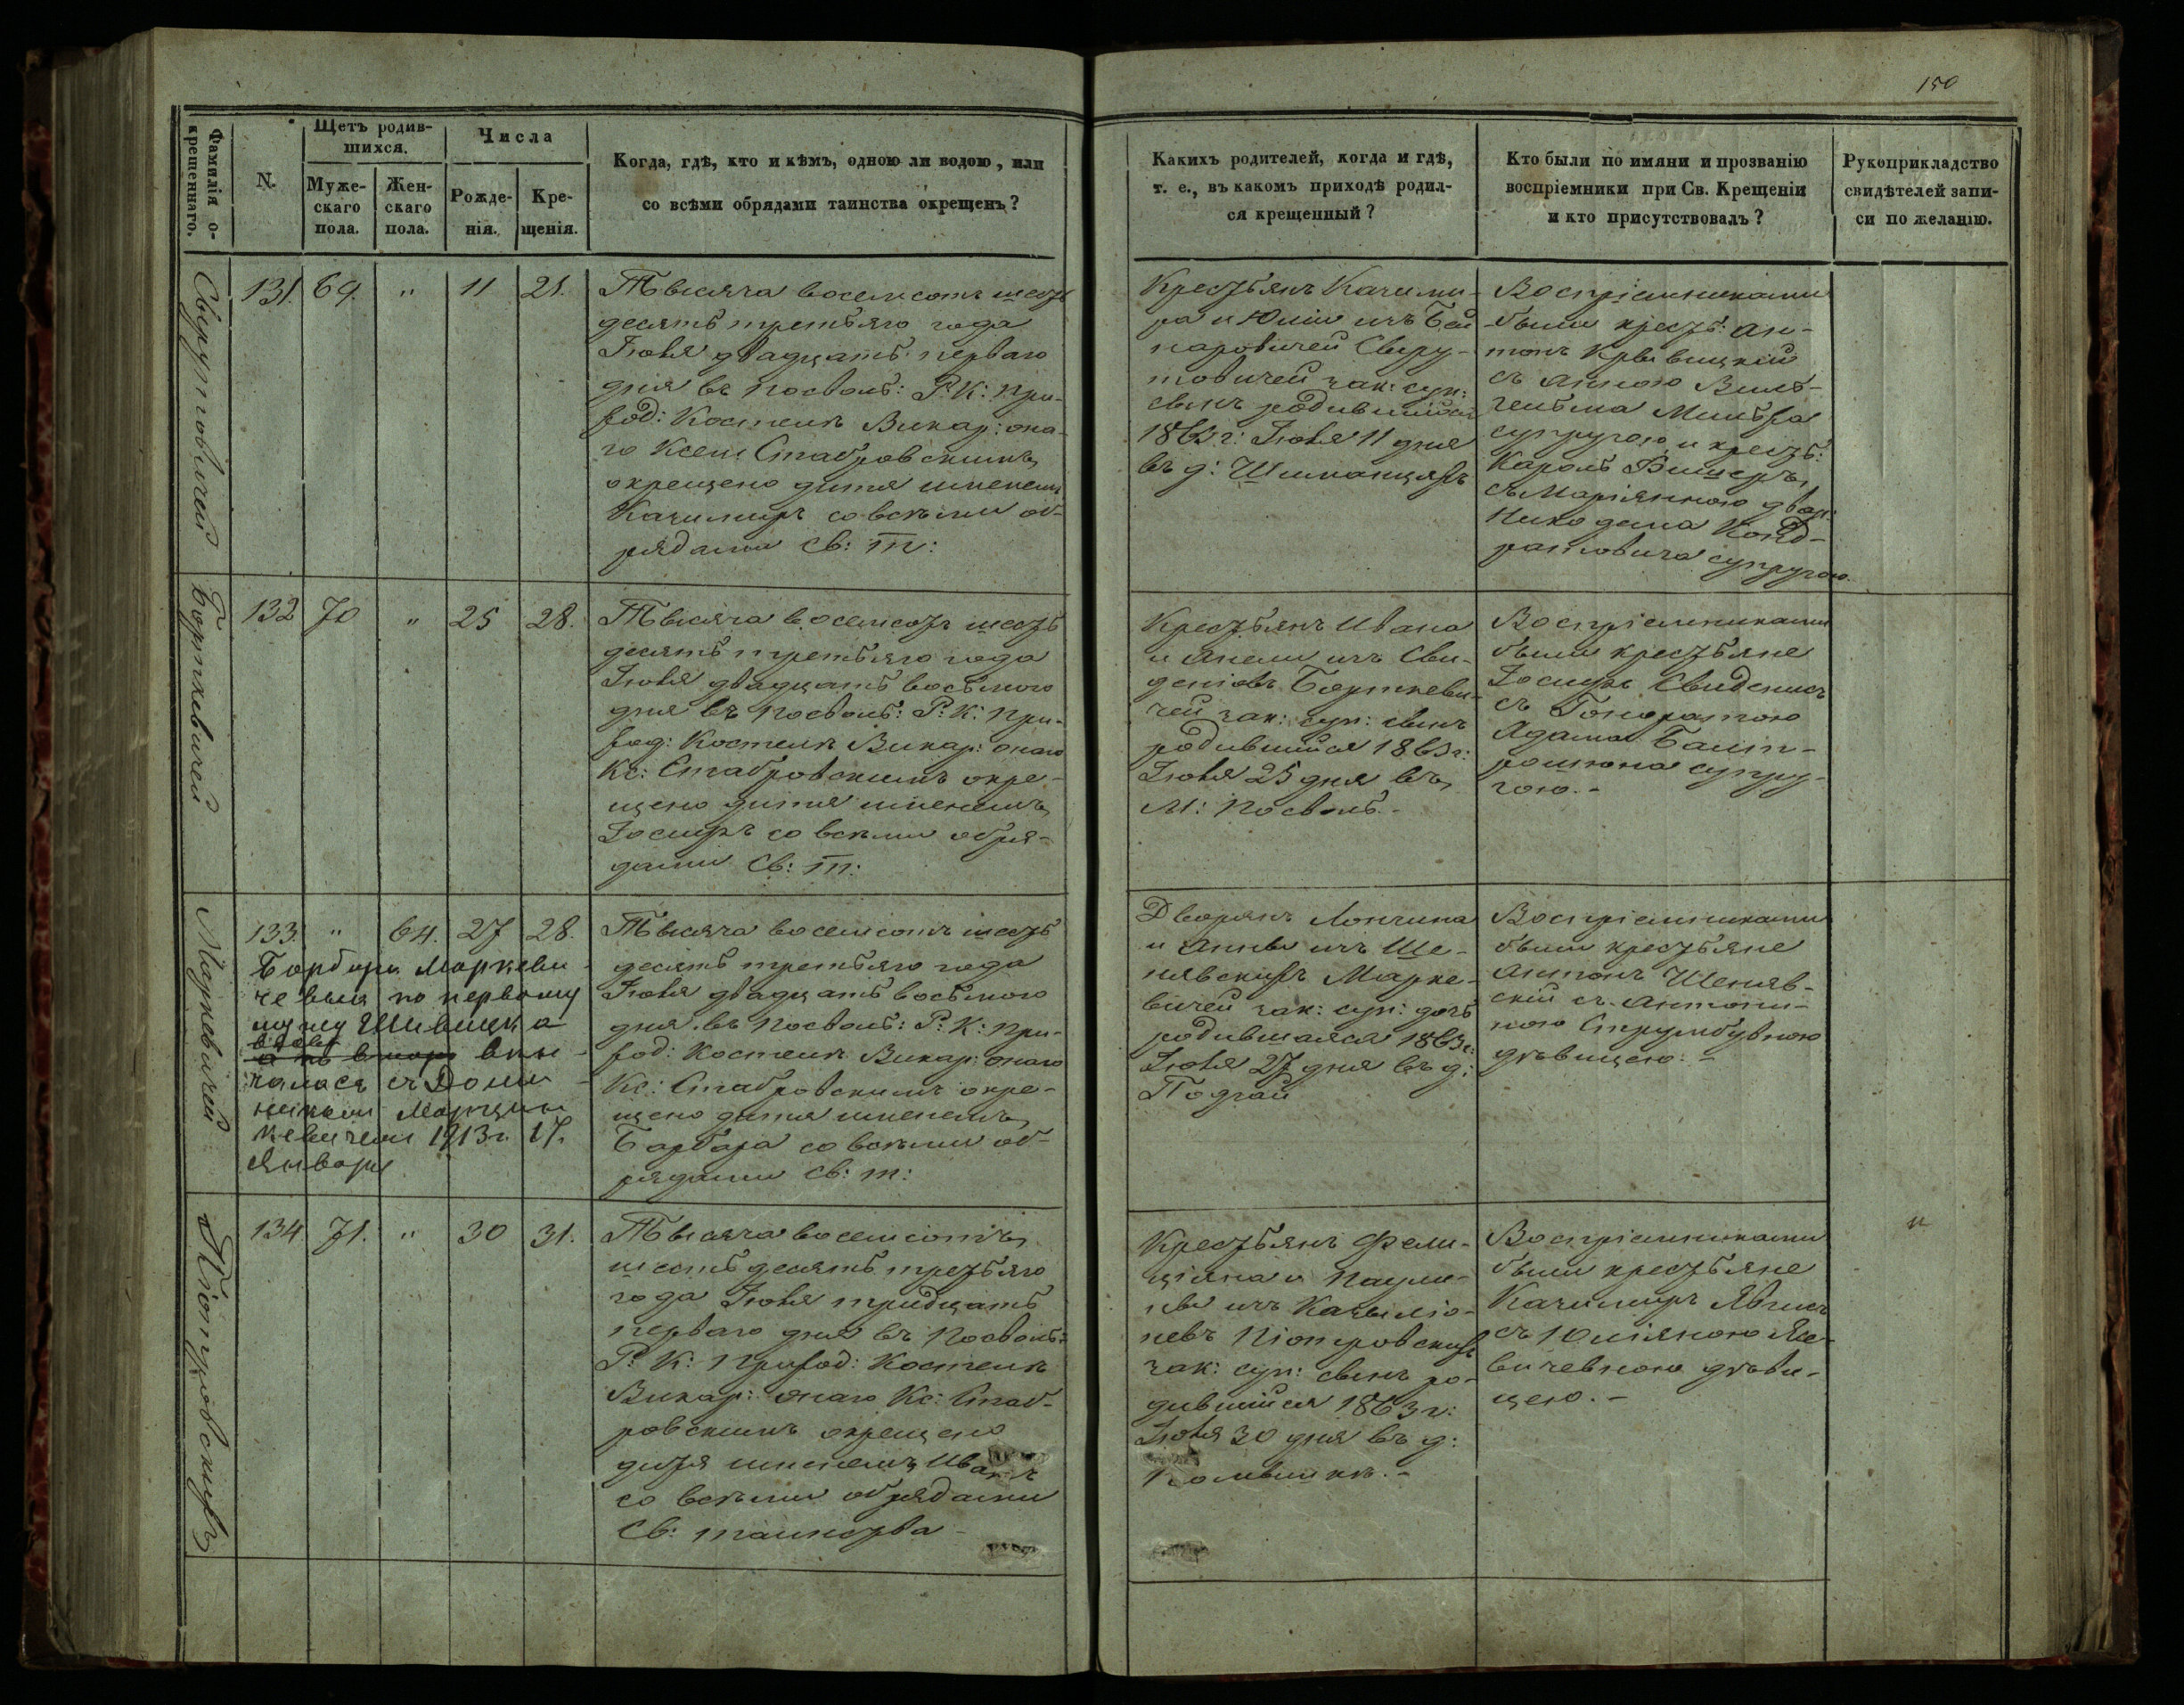 150
Фамилія о-
крещеннаго.
N.
Щетъ родив-
шихся.
Муже-
скаго
пола.
Жен-
скаго
пола.
Числа
Рожде-
нія.
Кре-
щенія.
Когда, гдѣ, кто и кѣмъ, одною ли водою, или
со всѣми обрядами таинства окрещенъ?
Какихъ родителей, когда и гдѣ,
т. е., въ какомъ приходѣ родил-
ся крещенный?
Кто были по имяни и прозванію
воспріемники при Св. Крещеніи
и кто присутствовалъ?
Рукоприкладство
свидѣтелей запи-
си по желанію.
Свирутовичей
131. 69. " 11 21.
Тысяча восемсотъ шесть
десятъ третьяго года
Іюля двадцать перваго
дня въ Посволь: Р: К: При-
ход: Костелѣ Викар: она-
го Ксен: Стабровскимъ
окрещено дитя именемъ
Казимиръ со всѣми об-
рядами Св: Т:
Крестьянъ Казими-
ра и Юліи изъ
Свиру-
товичей зак: суп:
сынъ родившійся
1863 г: Іюля 11 дня
въ д: Шиманцяхъ
Воспріемниками
были крест: Ан-
тонъ Крывицкій
съ Анною Виль-
гельма
супругою и крест:
Кароль Фишеръ
съ Маріянною двор:
Никодема Конд-
ратовича супругою.
Борткевичей
132 70 " 25 28.
Тысяча восемсотъ шесть
десятъ третьяго года
Іюля двадцать восьмого
дня въ Посволь: Р: К: При-
ход: Костелѣ Викар: онаго
Кс: Стабровскимъ окре-
щено дитя именемъ
Іосифъ со всѣми обря-
дами Св: Т:
Крестьянъ Ивана
и Анели изъ Сви-
деніовъ Борткеви-
чей зак: суп: сынъ
родившійся 1863 г:
Іюля 25 дня въ
М: Посволь.-
Воспріемниками
были крестьяне
Іосифъ Свиденисъ
съ Гоноратою
Адама Балт-
рошюна супру-
гою.-
Маркевичей
133. " 64. 27 28.
Барбара Маркеви-
чевыя по первому
мужу
вдова
а по втор вѣн-
чалась съ Доми-
никомъ Марцин-
кевичемъ 1913 г. 17.
Января
Тысяча восемсотъ шесть
десятъ третьяго года
Іюля двадцать восьмого
дня въ Посволь: Р: К: При-
ход: Костелѣ Викар: онаго
Кс: Стабровскимъ окре-
щено дитя именемъ
Барбара со всѣми об-
рядами Св: т:
Дворянъ Лонгина
и Анны изъ Ше-
нявскихъ Марке-
вичей зак: суп: дочь
родившаяся 1863 г:
Іюля 27 дня въ д:
Подгай
Воспріемниками
были крестьяне
Антонъ Шеняв-
скій съ Антони-
ною
дѣвицею:-
Піотровскихъ
134 71. " 30 31.
Тысяча восемсотъ
шесть десятъ третьяго
года Іюля тридцать
перваго дня въ Посволь:
Р: К: Приход: Костелѣ
Викар: онаго Кс: Стаб-
ровскимъ окрещено
дитя именемъ Иванъ
со всѣми обрядами
Св: таинства-
Крестьянъ Фели-
ціяна и Паули-
ны изъ
Піотровскихъ
зак: суп: сынъ ро-
дившійся 1863 г:
Іюля 30 дня въ д:
Воспріемниками
были крестьяне
Казимиръ
съ Юліяною
дѣви-
цею.-
"